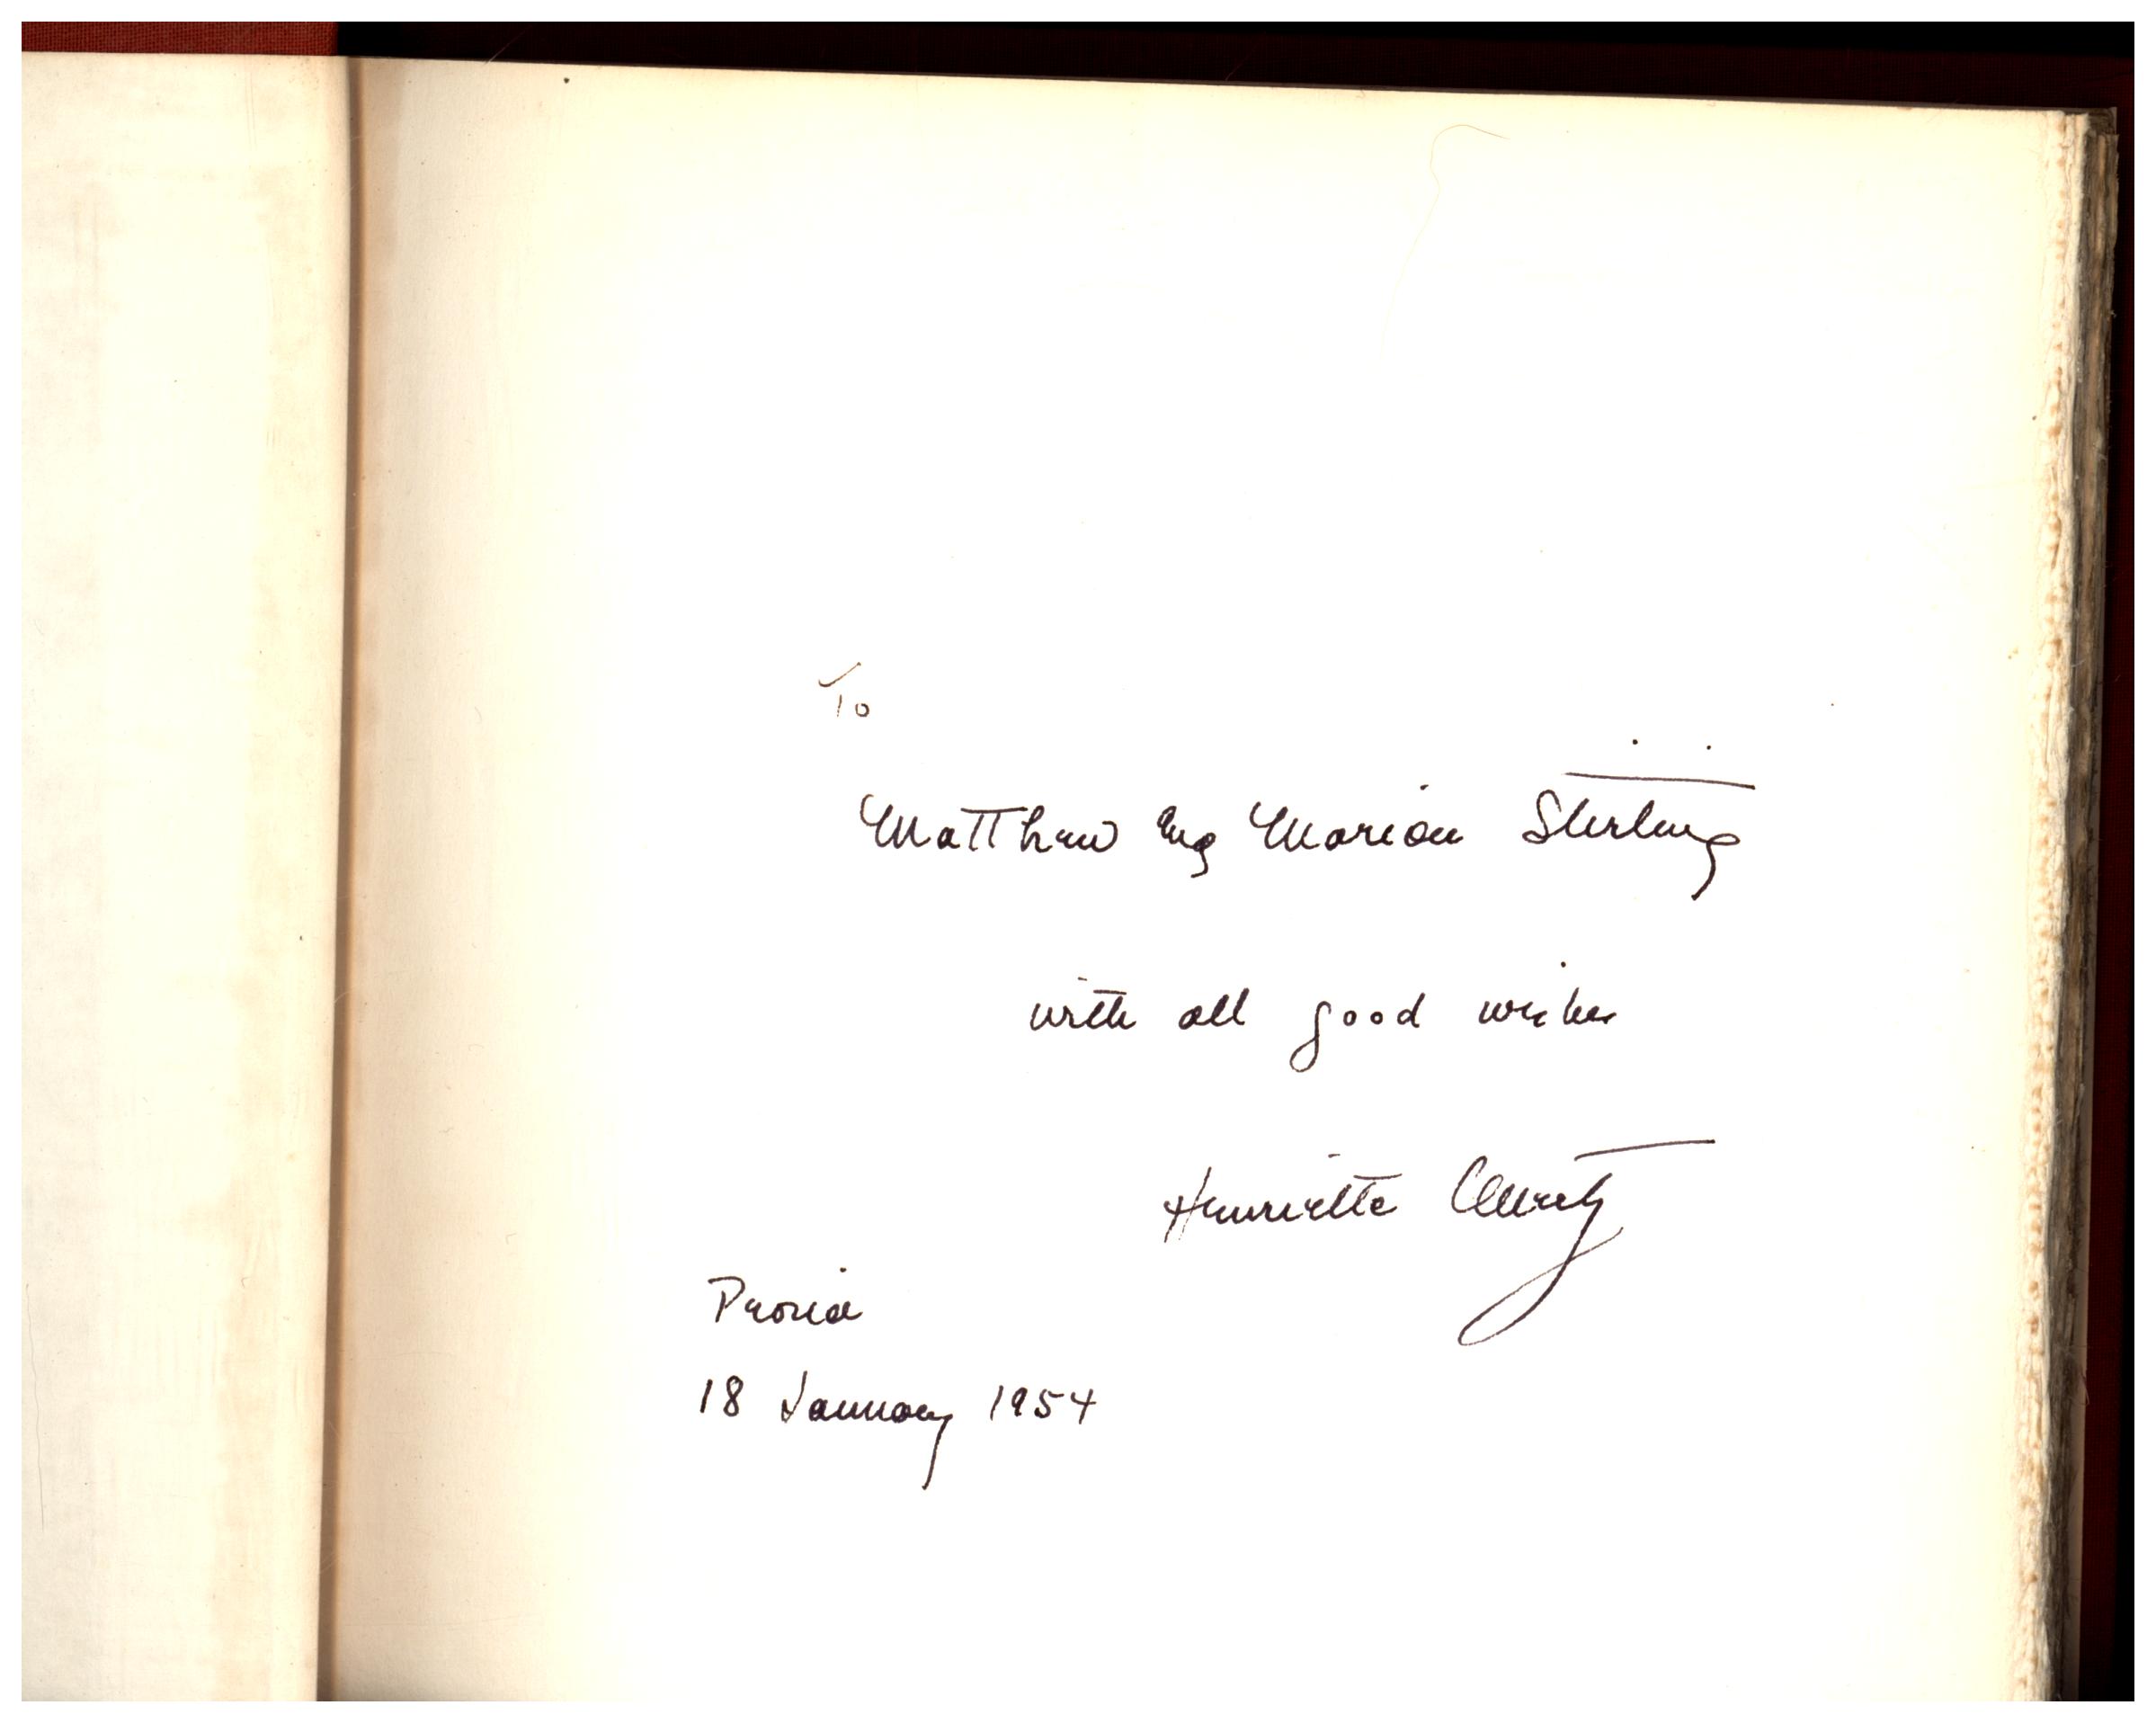 To
Matthew and Marion Stirling
with all good wishes
Henriette Mertz
Peoria
18 January 1954